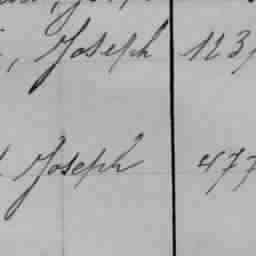 , Joseph 123
Joseph 477